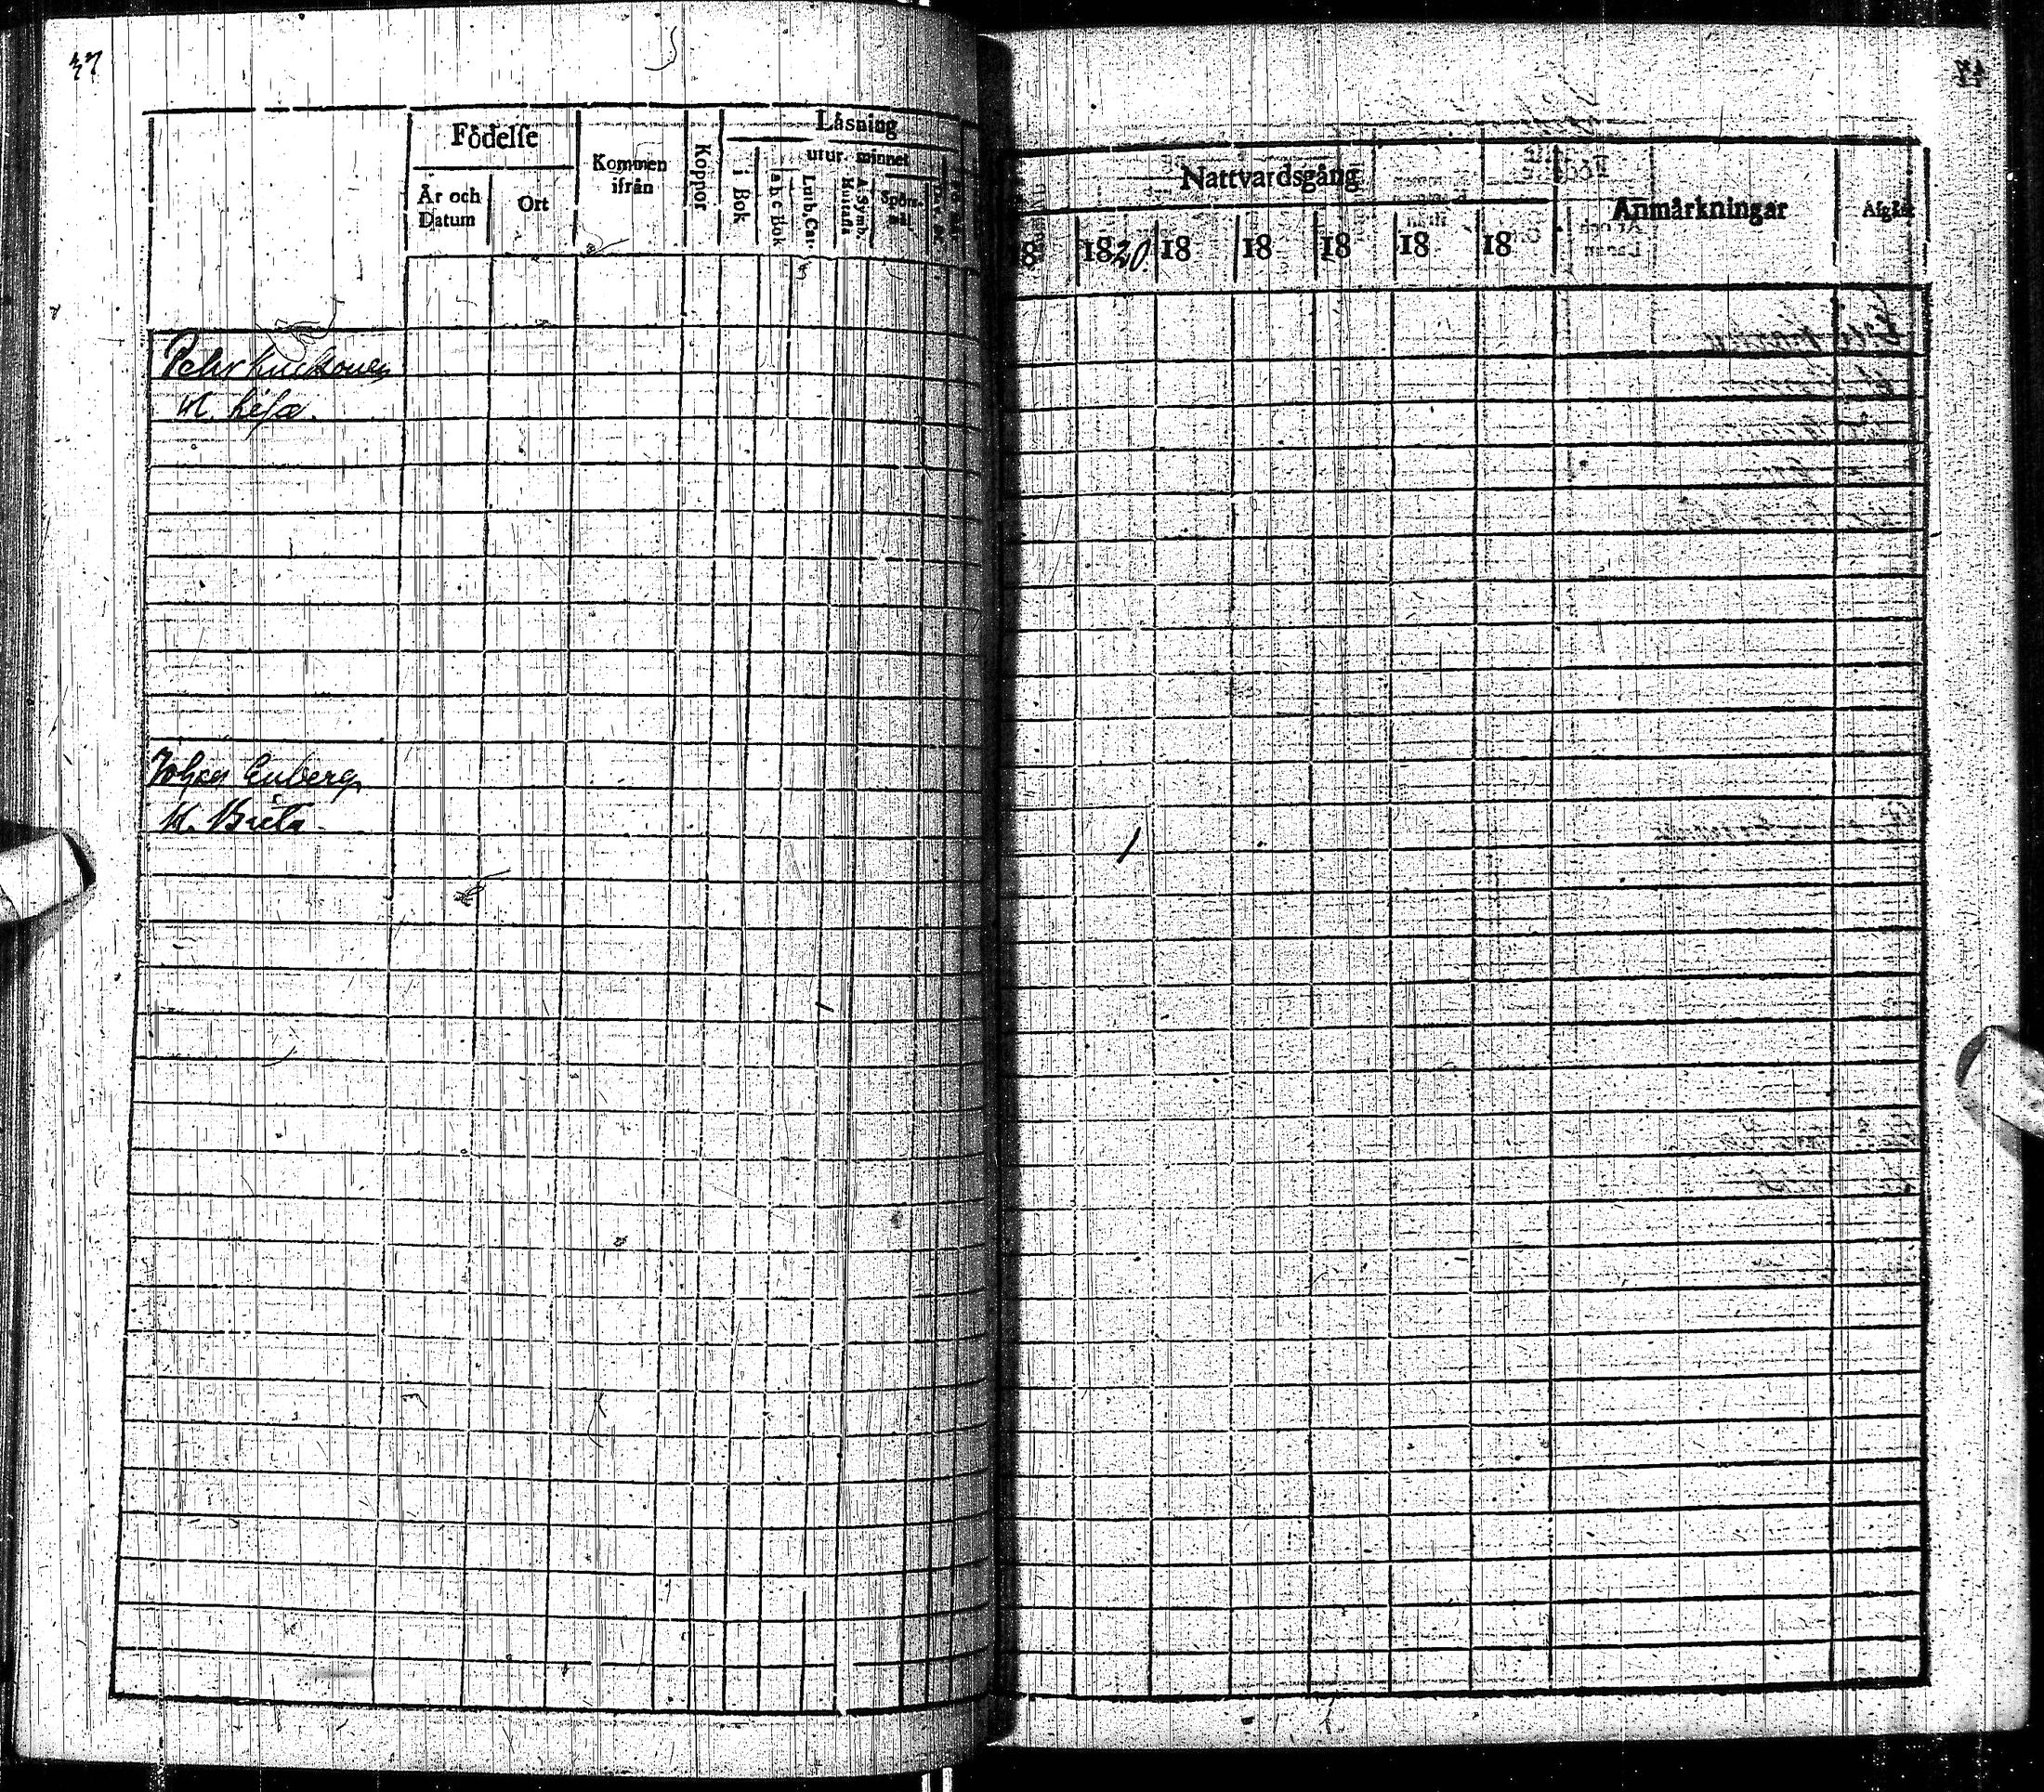 Födelse
Kommen ifrån
Koppor
Läsning
utur minnet
År och Datum
Ort
i Bok
a b c Bok
Luth. Cat.
Hustafla
A. Symb.
Spörsmål
Nattvardsgång
Anmärkningar
Afgått
18
1820
18
18
18
18
18
Pehr
H. Lisa.
Johan Enberg
H. Brita